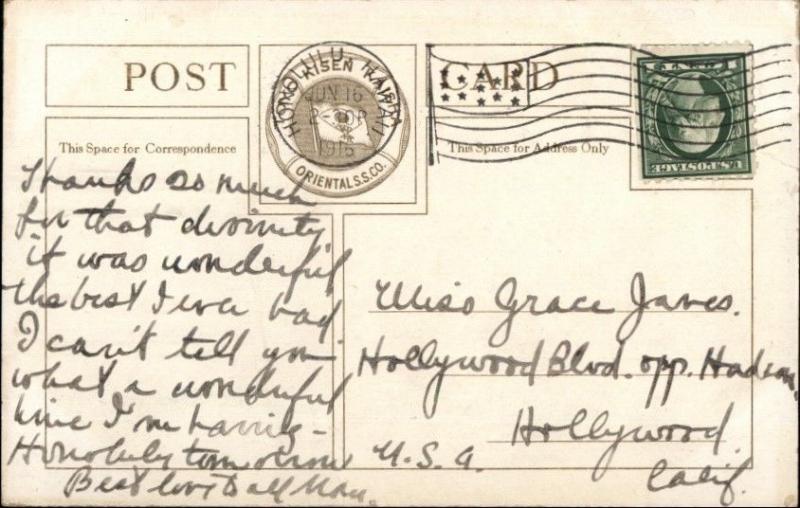 POST CARD
TOYO KISEN KAISHA
ORIENTAL S.S.CO.
HONOLULU HAWAII
JUN 16
1915
U.S. POSTAGE
This Space for Correspondence
This Space for Address Only
Thanks so much
for that divinity
it was wonderful
the best I ever had
I can't tell you
what a wonderful
time I'm having -
Honolulu tomorrow
Best love to all
Miss Grace James.
Hollywood Blvd. opp. Hudson
Hollywood
U.S.A.
Calif.